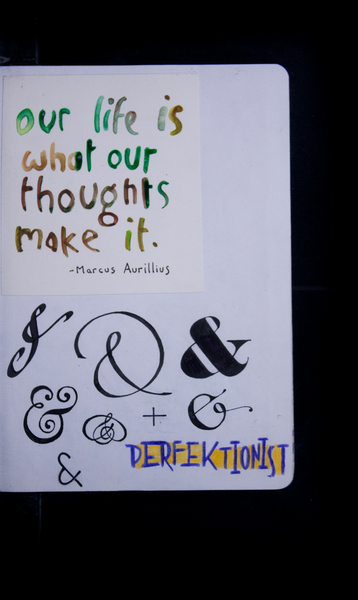 our life is
what our
thoughts
make it.
-Marcus Aurillius
& & &
& & + &
&
PERFEKTIONIST